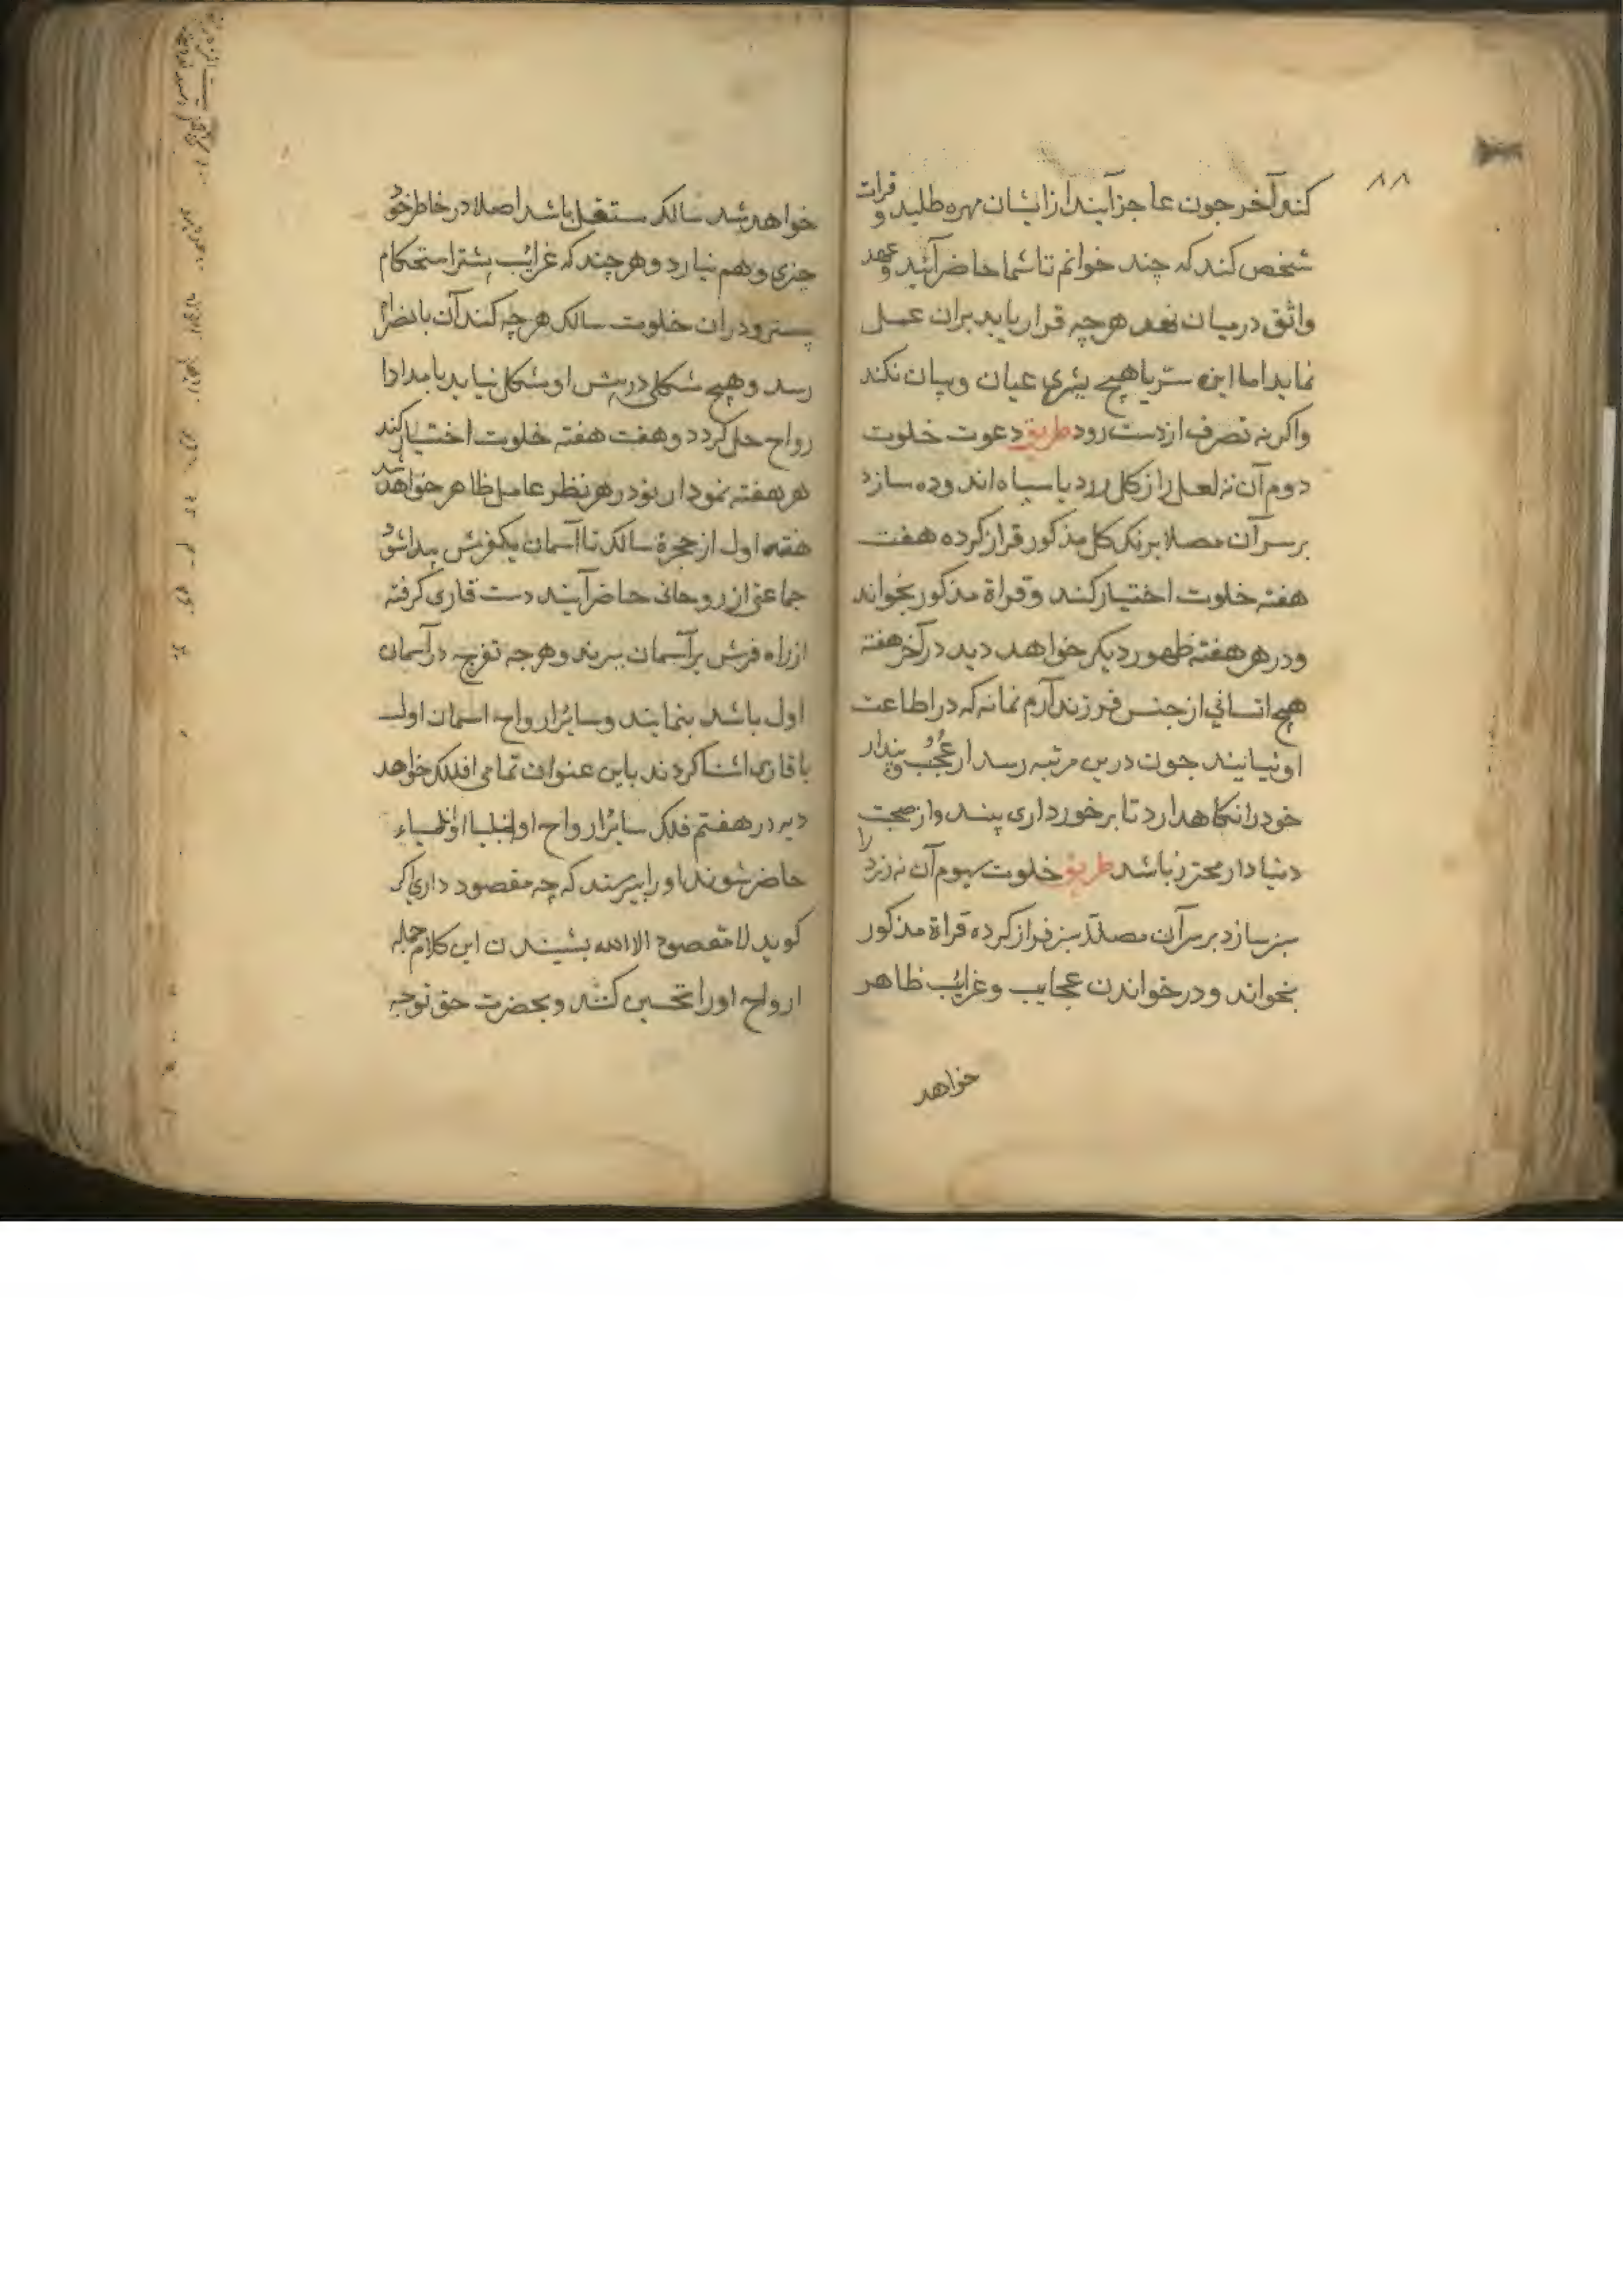 ۸۸
کند آخر جون عاجز آیند از ایشان مهره طلبد و قرات
شخص کند که چند خوانم تا شما حاضر آئید و عهد
واثق درمیان نهد هرچه قرار یابد بران عمل
نماید اما این ستر با هیچ بشری عیان و بیان نکند
واکرنه تصرف از دست رود طریق دعوت خلوت
دوم آن نه لعل را از کل زرد یا سیاه اندوده سازد
برسر آن مصلا برنک کل مذکور فراز کرده هفت
هفته خلوت اختیار کند و قراة مذکور بخواند
ودر هر هفته ظهور دیکر خواهد دید در آخر هفته
هیچ انسانی از جنس فرزند آدم نماند که در اطاعت
او نیایند جون درین مرتبه رسد از عجب و پندار
خود را نکاهدارد تا برخورداری بیند و از صحبت
دنیادار محترز باشد طریق خلوت سیوم آن نه زرد را
سبز سازد برسر آن مصلای سبز فراز کرده قراة مذکور
بخواند ودر خواندن عجایب وغرائب ظاهر
خواهد
خواهد شد سالک مستقل باشد اصلا در خاطر خود
چیزی وهم نیارد و هرچند که غرائب بیشتر استحکام
بیشتر ودران خلوت سالک هرچه کند آن بانضرام
رسد وهیچ مشکلی در پیش او مشکل نیاید بامداد ا
رواح حل کردد و هفت هفته خلوت اختیار کند
هر هفته نمودار نو در نظر عامل ظاهر خواهد شد
هفته اول از حجرۀ سالک تا آسمان یکفرش پیدا شود
جماعتی از روحانی حاضر آیند دست قاری کرفته
از راه فرش بر آسمان ببرند وهرجه تفرج در آسمان
اول باشد بنمایند وسائر ارواح اسمان اول
با قاری اشنا کردند باین عنوان تمامی افلاک خواهد
دید در هفتم فلک سائر ارواح اولیا انبیا
حاضر شوند او را بپرسند که چه مقصود داری اکر
کوید لا مقصود الا الله بشنیدن این کلام جمله
ارواح او را تحسین کنند و بحضرت حق توجه